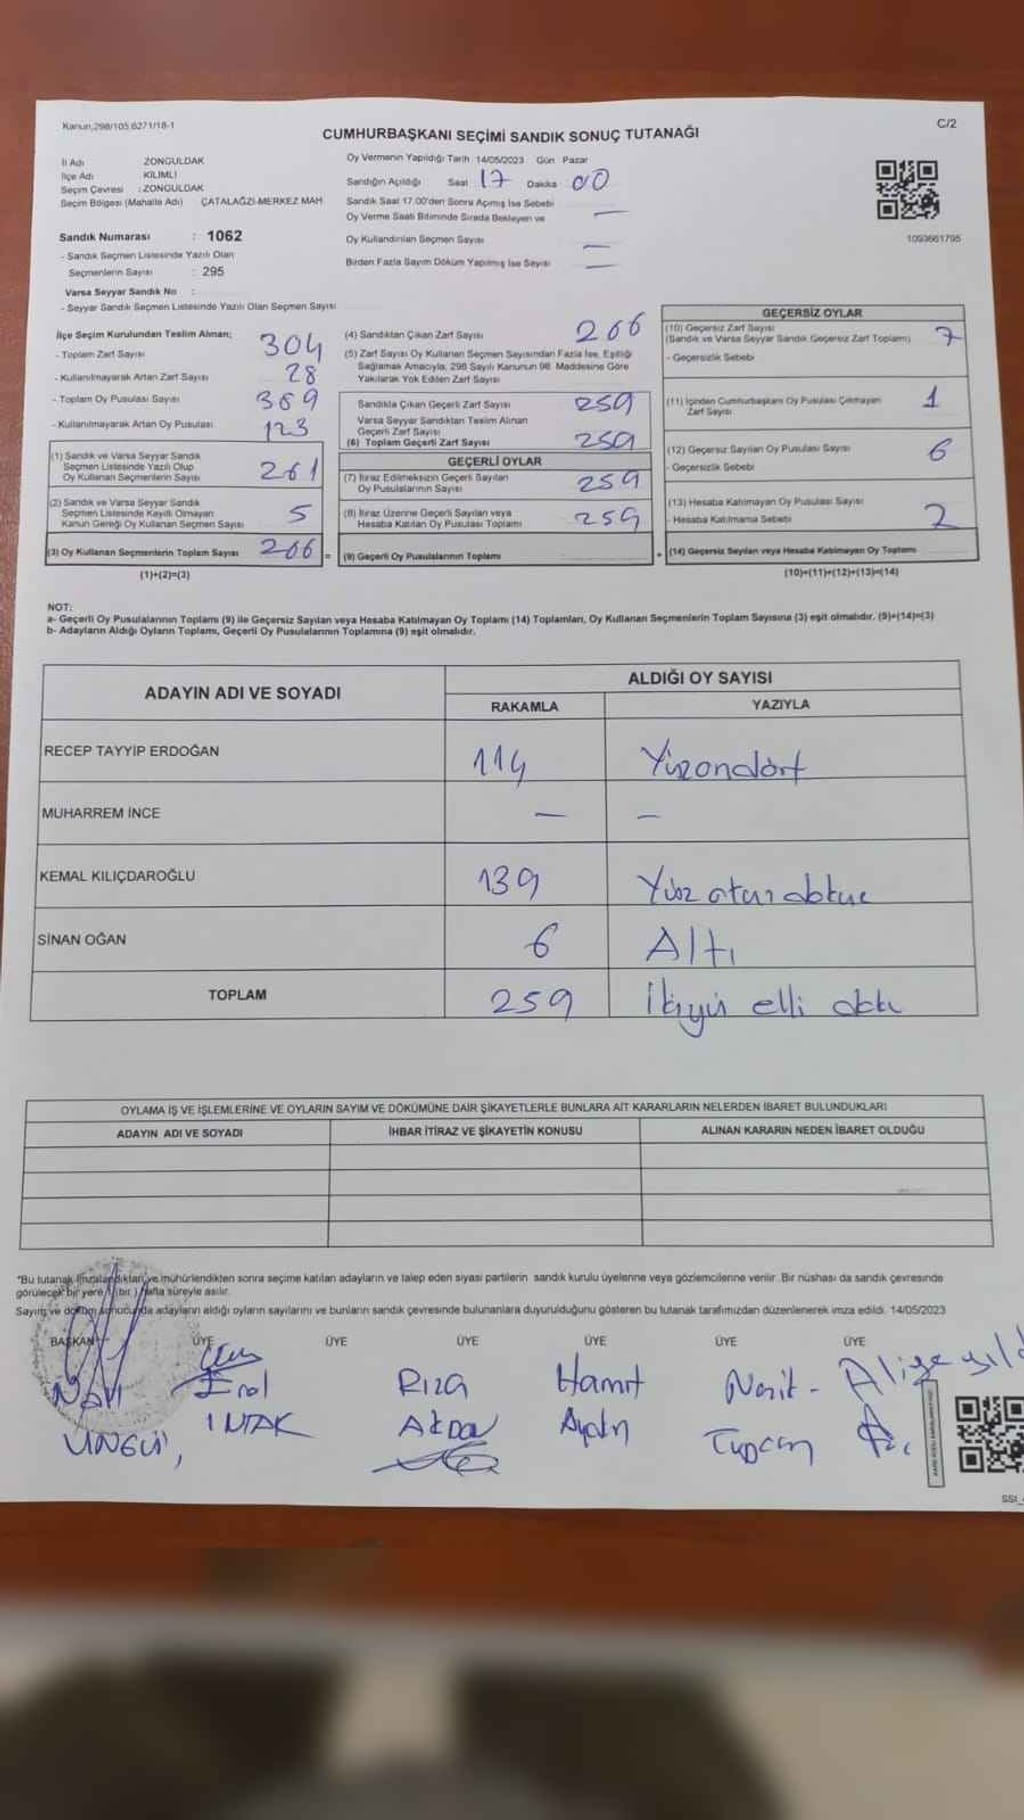 Kanun;298/105;6271/18-1
C/2
CUMHURBAŞKANI SEÇİMİ SANDIK SONUÇ TUTANAĞI
İl Adı ZONGULDAK
İlçe Adı KİLİMLİ
Seçim Çevresi : ZONGULDAK
Seçim Bölgesi (Mahalle Adı) ÇATALAĞZI-MERKEZ MAH
Oy Vermenin Yapıldığı Tarih 14/05/2023 Gün Pazar
Sandığın Açıldığı Saat 17 Dakika 00
Sandık Saat 17.00'den Sonra Açılmış İse Sebebi
Oy Verme Saati Bitiminde Sırada Bekleyen ve —
Oy Kullandırılan Seçmen Sayısı —
Birden Fazla Sayım Döküm Yapılmış İse Sayısı —
1093661795
Sandık Numarası : 1062
- Sandık Seçmen Listesinde Yazılı Olan
Seçmenlerin Sayısı : 295
Varsa Seyyar Sandık No :
- Seyyar Sandık Seçmen Listesinde Yazılı Olan Seçmen Sayısı
İlçe Seçim Kurulundan Teslim Alınan;
- Toplam Zarf Sayısı 304
- Kullanılmayarak Artan Zarf Sayısı 28
- Toplam Oy Pusulası Sayısı 389
- Kullanılmayarak Artan Oy Pusulası 123
(1) Sandık ve Varsa Seyyar Sandık
Seçmen Listesinde Yazılı Olup
Oy Kullanan Seçmenlerin Sayısı 261
(2) Sandık ve Varsa Seyyar Sandık
Seçmen Listesinde Kayıtlı Olmayan
Kanun Gereği Oy Kullanan Seçmen Sayısı 5
(3) Oy Kullanan Seçmenlerin Toplam Sayısı 266 =
(1)+(2)=(3)
(4) Sandıktan Çıkan Zarf Sayısı 266
(5) Zarf Sayısı Oy Kullanan Seçmen Sayısından Fazla İse, Eşitliği
Sağlamak Amacıyla, 298 Sayılı Kanunun 98. Maddesine Göre
Yakılarak Yok Edilen Zarf Sayısı
Sandıkta Çıkan Geçerli Zarf Sayısı 259
Varsa Seyyar Sandıktan Teslim Alınan
Geçerli Zarf Sayısı
(6) Toplam Geçerli Zarf Sayısı 259
GEÇERLİ OYLAR
(7) İtiraz Edilmeksizin Geçerli Sayılan
Oy Pusulalarının Sayısı 259
(8) İtiraz Üzerine Geçerli Sayılan veya
Hesaba Katılan Oy Pusulası Toplamı 259
(9) Geçerli Oy Pusulalarının Toplamı +
GEÇERSİZ OYLAR
(10) Geçersiz Zarf Sayısı
(Sandık ve Varsa Seyyar Sandık Geçersiz Zarf Toplamı) 7
- Geçersizlik Sebebi
(11) İçinden Cumhurbaşkanı Oy Pusulası Çıkmayan
Zarf Sayısı 1
(12) Geçersiz Sayılan Oy Pusulası Sayısı 6
- Geçersizlik Sebebi
(13) Hesaba Katılmayan Oy Pusulası Sayısı
- Hesaba Katılmama Sebebi 2
(14) Geçersiz Sayılan veya Hesaba Katılmayan Oy Toplamı
(10)+(11)+(12)+(13)=(14)
NOT:
a- Geçerli Oy Pusulalarının Toplamı (9) ile Geçersiz Sayılan veya Hesaba Katılmayan Oy Toplamı (14) Toplamları, Oy Kullanan Seçmenlerin Toplam Sayısına (3) eşit olmalıdır. (9)+(14)=(3)
b- Adayların Aldığı Oyların Toplamı, Geçerli Oy Pusulalarının Toplamına (9) eşit olmalıdır.
ADAYIN ADI VE SOYADI
ALDIĞI OY SAYISI
RAKAMLA YAZIYLA
RECEP TAYYİP ERDOĞAN 114 Yüzondört
MUHARREM İNCE — —
KEMAL KILIÇDAROĞLU 139 Yüz otuz dokuz
SİNAN OĞAN 6 Altı
TOPLAM 259 İkiyüz elli
OYLAMA İŞ VE İŞLEMLERİNE VE OYLARIN SAYIM VE DÖKÜMÜNE DAİR ŞİKAYETLERLE BUNLARA AİT KARARLARIN NELERDEN İBARET BULUNDUKLARI
ADAYIN ADI VE SOYADI İHBAR İTİRAZ VE ŞİKAYETİN KONUSU ALINAN KARARIN NEDEN İBARET OLDUĞU
*Bu tutanak imzalandıktan ve mühürlendikten sonra seçime katılan adayların ve talep eden siyasi partilerin sandık kurulu üyelerine veya gözlemcilerine verilir. Bir nüshası da sandık çevresinde
görülecek bir yere 1 (bir) hafta süreyle asılır.
Sayım ve döküm sonucunda adayların aldığı oyların sayılarını ve bunların sandık çevresinde bulunanlara duyurulduğunu gösteren bu tutanak tarafımızdan düzenlenerek imza edildi. 14/05/2023
BAŞKAN ÜYE ÜYE ÜYE ÜYE ÜYE ÜYE
Erol Rıza Hamit Aliye
Aydın